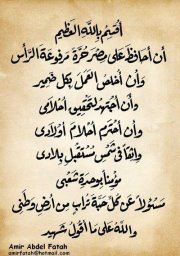 أقسم بالله العظيم
أن أحافظ على مصر حرة مرفوعة الرأس
وأن أخلص العمل بكل ضمير
وأن أجتهد لتحقيق أحلامى
وأن أحترم أحلام أولادى
واثقاً فى شمس مستقبل بلادى
مؤمناً بوحدة شعبى
مسئولاً عن كل حبة تراب من أرض وطنى
والله على ما أقول شهيد
Amir Abdel Fatah
amirfatah@hotmail.com